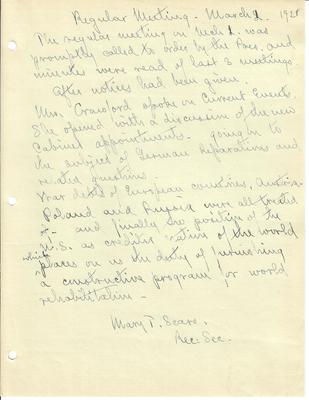 Regular Meeting - March 1. 1921
The regular meeting on Mch 1. was
promptly called to order by the Pres. and
minutes were read of last 3 meetings.
After notices had been given
Mrs. Crawford spoke on Current Events
She opened with a discussion of the new
Cabinet appointments. going on to
the subject of German Reparations and
related questions.
War debts of European countries, Austria-
Poland and Russia were all treated
+ - and finally the position of the
U.S. as creditor nation of the world
which places on us the duty of furnishing
a constructive program for world
rehabilitation -
Mary T. Sears.
Rec. Sec.